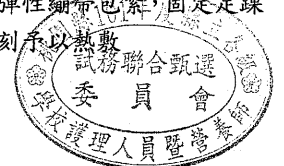 彈性繃帶包紮,固定足踝
刻予以熱敷
試務聯合甄選
委員會
學校護理人員暨營養師